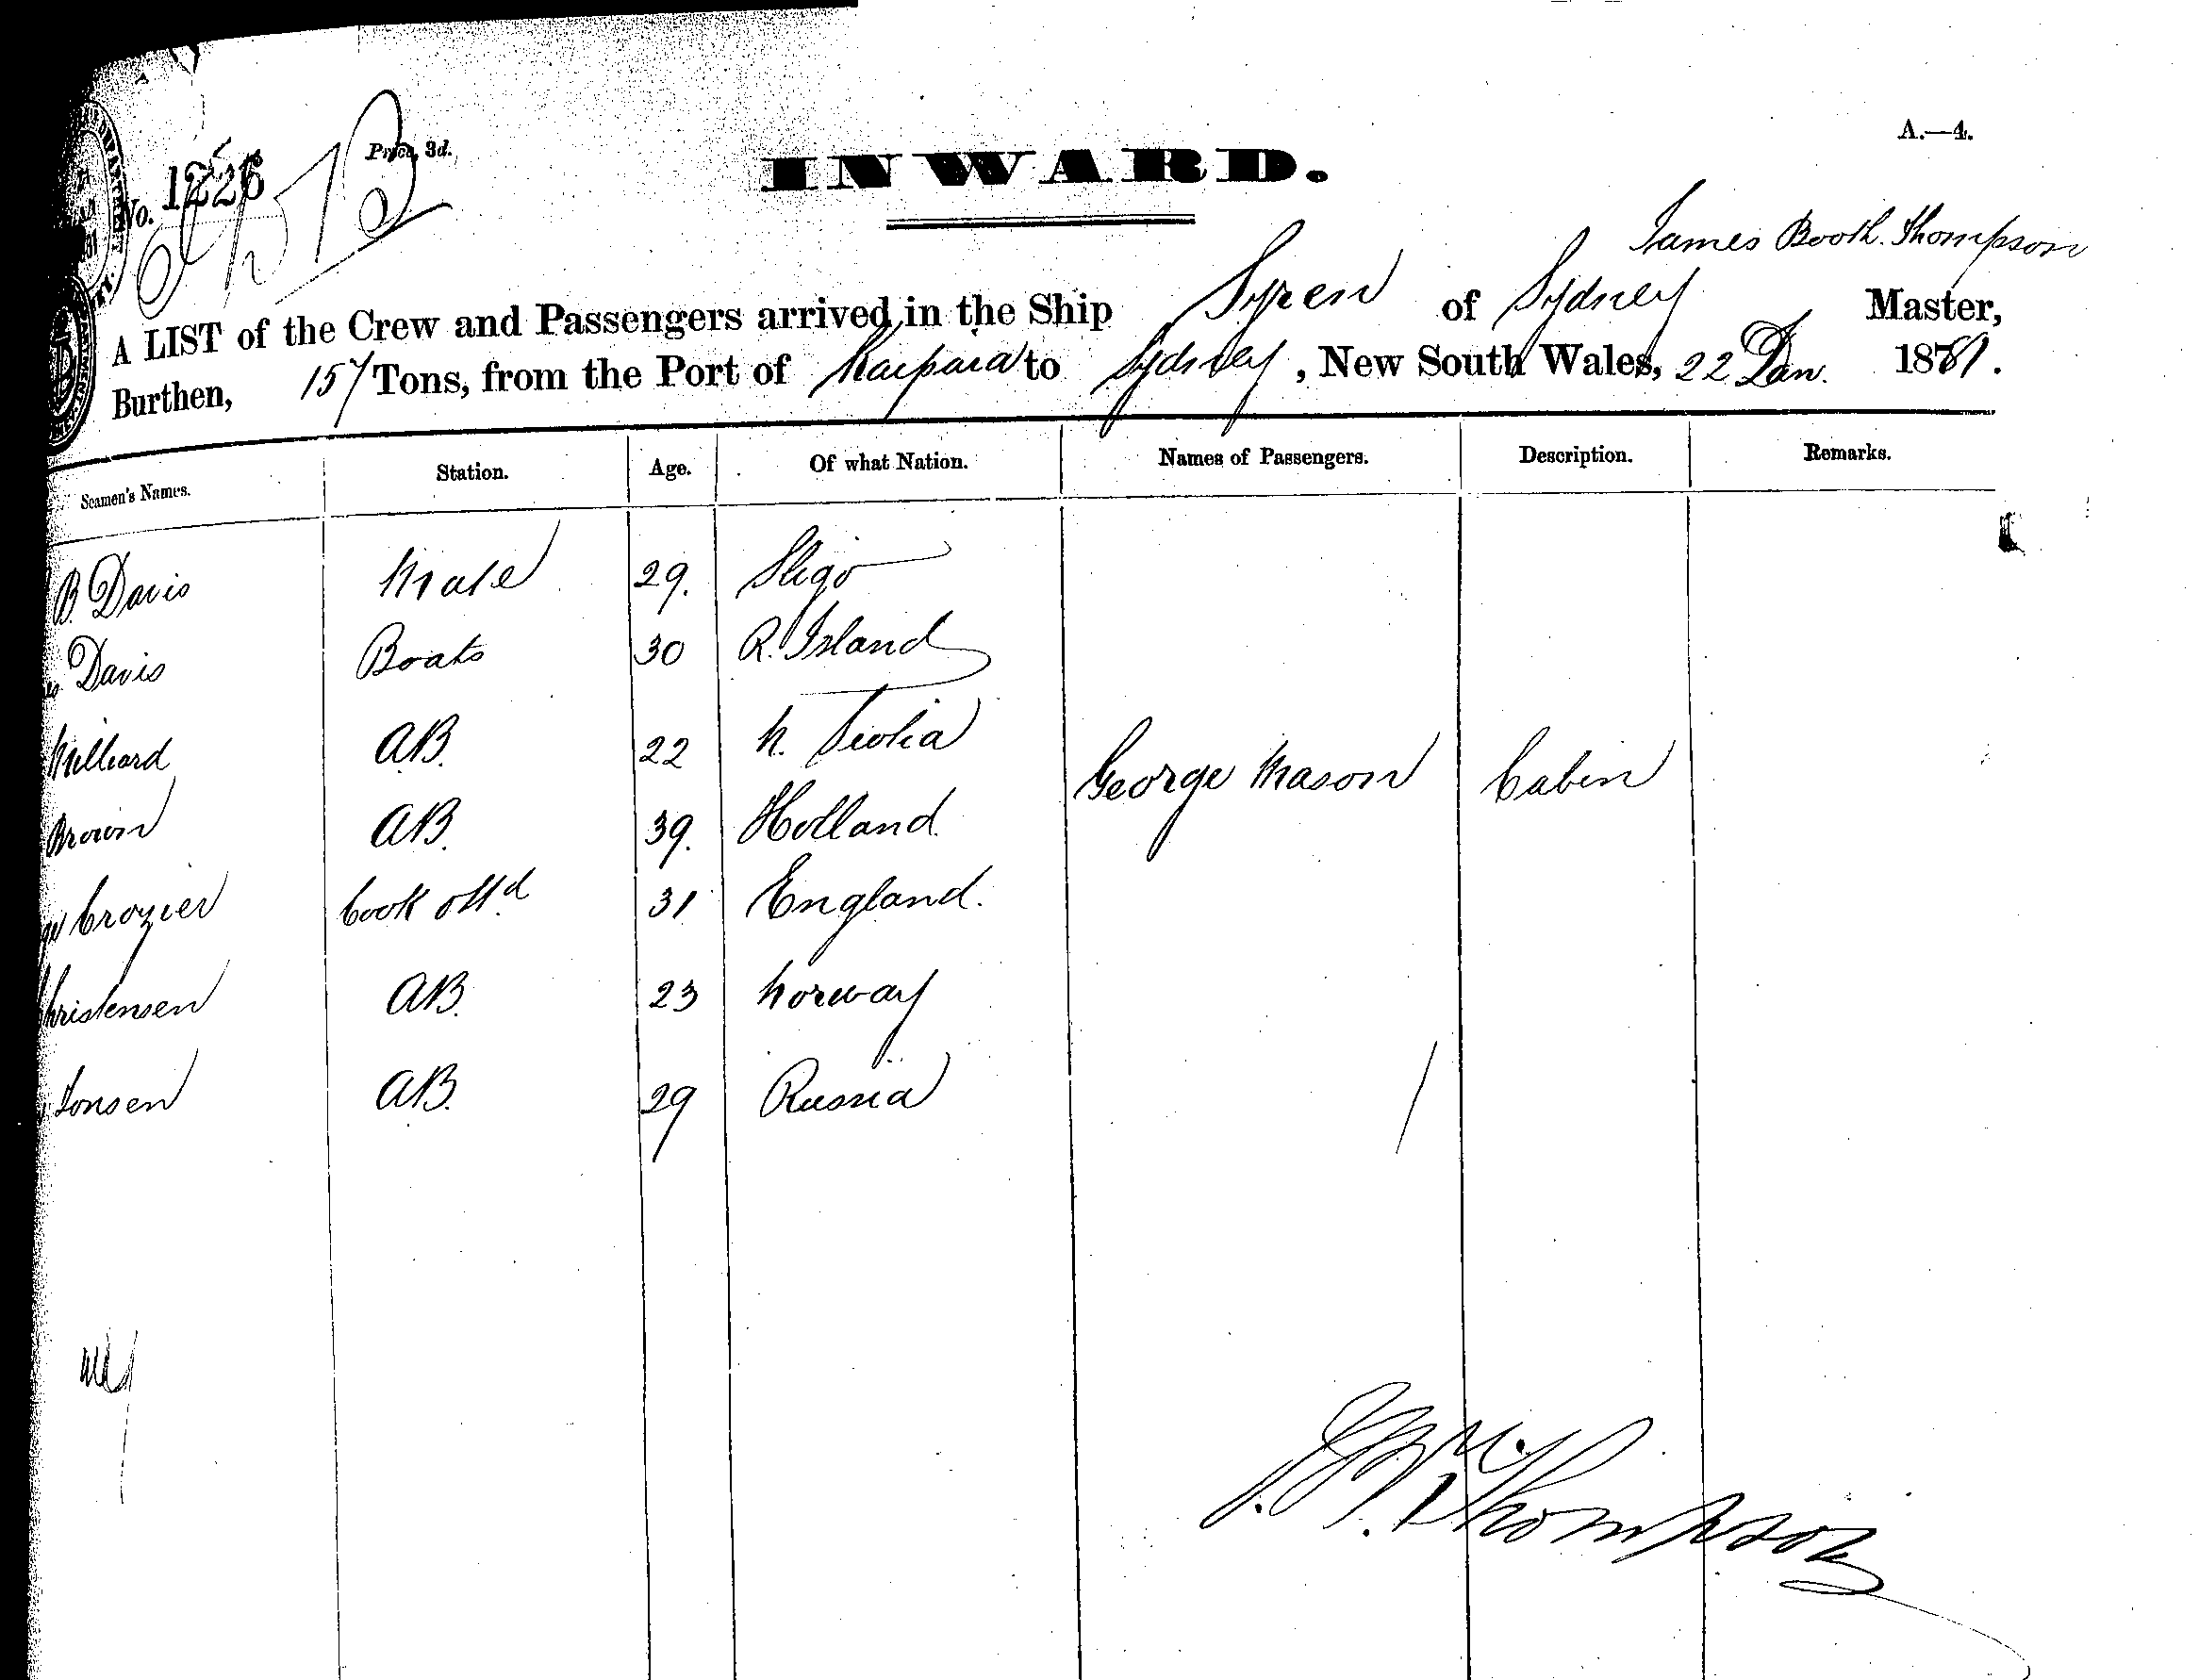 A.—4.
No. 1226 Price, 3d.
INWARD.
James Booth. Thompson
A LIST of the Crew and Passengers arrived in the Ship Syren of Sydney Master,
Burthen, 157 Tons, from the Port of Kaipara to Sydney, New South Wales, 22 Jan. 1881.
Seamen's Names. Station. Age. Of what Nation. Names of Passengers. Description. Remarks.
B. Davis Mate 29. Sligo
Davis Boats 30 R. Island
Milliard AB. 22 N. Scotia
George Mason Cabin
Brown AB. 39. Holland.
Crozier Cook & Std 31 England.
Christensen AB. 23 Norway
Jonsen AB. 29 Russia
Thompson